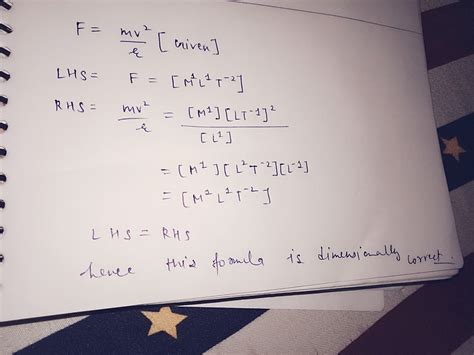 F = mv²/r [Given]
LHS = F = [M¹L¹T⁻²]
RHS = mv²/r = [M¹][LT⁻¹]²/[L¹]
= [M¹][L²T⁻²][L⁻¹]
= [M¹L¹T⁻²]
LHS = RHS
hence this formula is dimensionally correct.